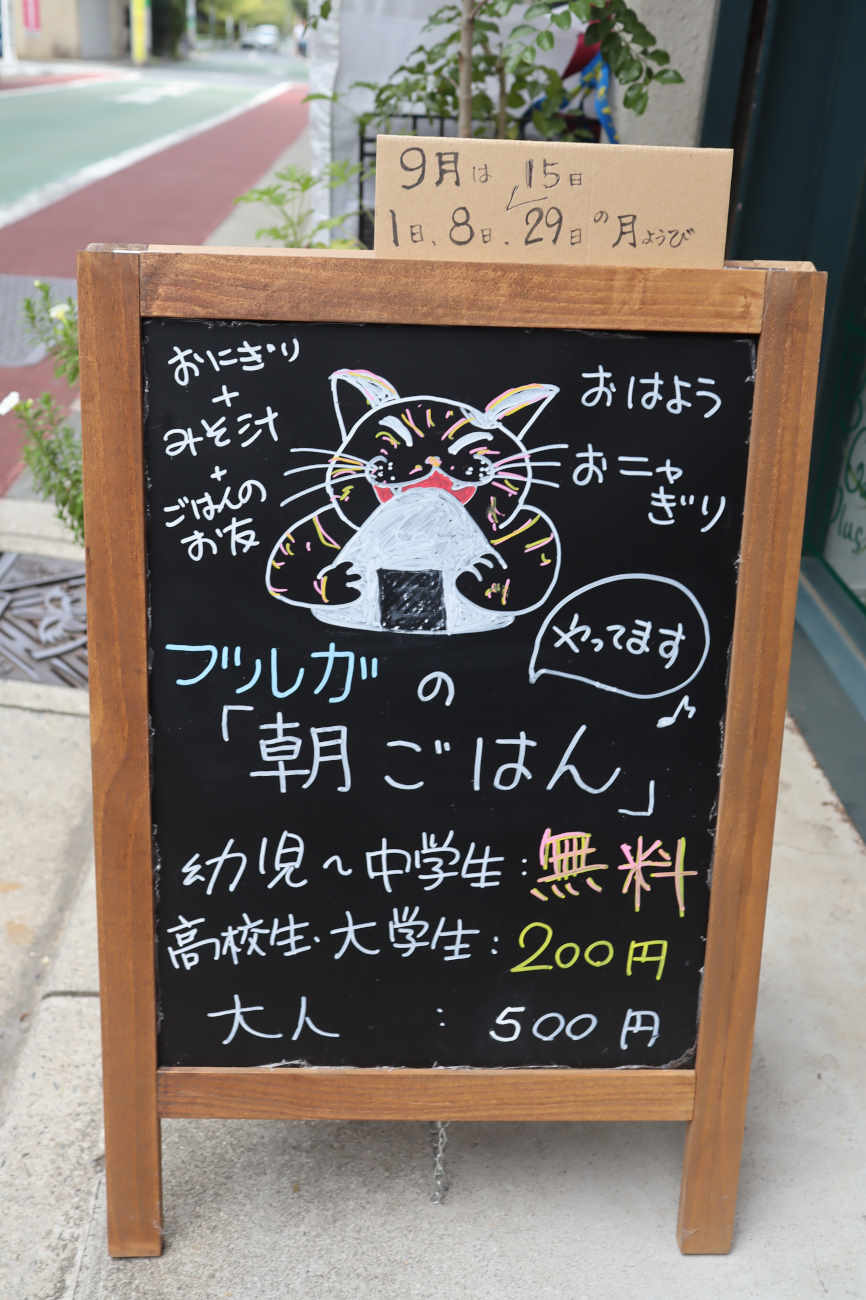 9月は 15日
1日、8日、29日の月ようび
おにぎり
+
みそ汁
+
ごはんの
お友
おはよう
おニャ
ぎり
やってます
ブルガの
「朝ごはん」
幼児〜中学生:無料
高校生・大学生:200円
大人 : 500円